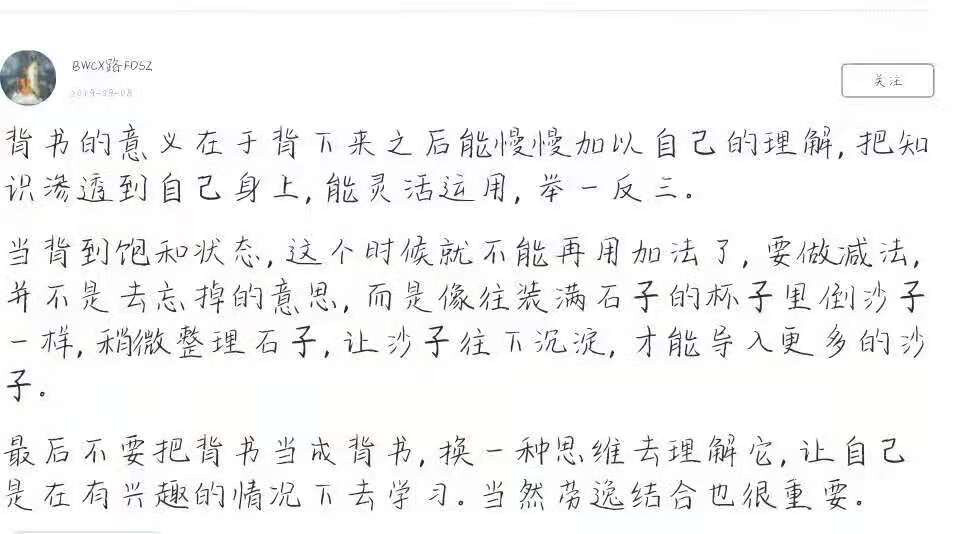 BWCX路FDSZ
2019-09-08
关注
背书的意义在于背下来之后能慢慢加以自己的理解,把知
识渗透到自己身上,能灵活运用,举一反三。
当背到饱和状态,这个时候就不能再用加法了,要做减法,
并不是去忘掉的意思,而是像往装满石子的杯子里倒沙子
一样,稍微整理石子,让沙子往下沉淀,才能导入更多的沙
子。
最后不要把背书当成背书,换一种思维去理解它,让自己
是在有兴趣的情况下去学习。当然劳逸结合也很重要。